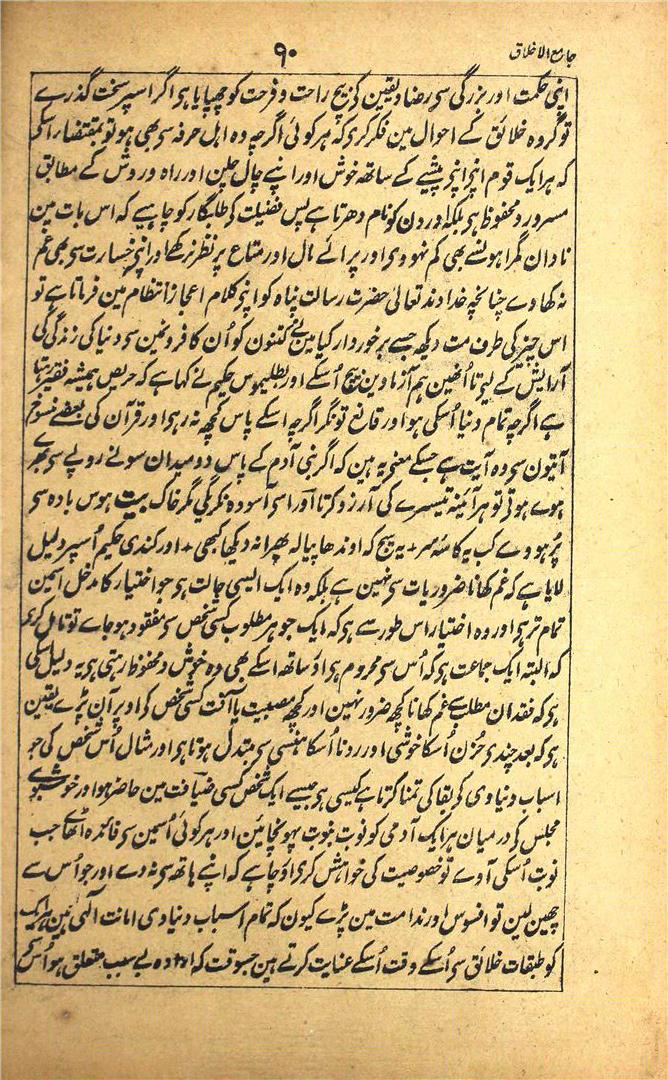 جامع الاخلاق
۹۰
اپنی حکمت اور بزرگی سی رضا و یقین کی بیچ راحت و فرحت کو چھپایا ہی اگر اسپر سخت گذرے
تو گروہ خلائق کے احوال مین فکر کری کہ ہر کوئی اگرچہ وہ اہل حرفہ سی بھی ہو تو بمقتضا اسکی
کہ ہر ایک قوم اپنی اپنی پیشے کے ساتھ خوش اور اپنے چال چلن اور راہ و روش کے مطابق
مسرور و محفوظ ہی بلکہ اورون کو نام دھرتا ہے پس فضیلت کی طلبگار کو چاہیے کہ اس بات مین
نادان گمراہونسے بھی کم نہووی اور پرائے مال اور متاع پر نظر نرکھے اور اپنی خسارت سی بھی غم
نہ کھاوے چنانچہ خداوند تعالی حضرت رسالت پناہ کو اپنی کلام اعجاز انتظام مین فرماتا ہے تو
اس چیز کی طرف مت دیکھ جسے برخوردار کیا مین نے کتنون کو اُن کافرونمین سی دنیا کی زندگی کی
آرایش کے لیے تا اُنھین ہم آزماوین بیچ اُسکے اور بطلیموس حکیم نے کہا ہے کہ حریص ہمیشہ فقیر رہتا
ہے اگرچہ تمام دنیا اُسکی ہو اور قانع تونگر اگرچہ اسکے پاس کچھ نہ رہی اور قرآن کی بعضے منسوخ
آیتون سی وہ آیت ہے جسکے معنی یہ ہین کہ اگر بنی آدم کے پاس دو میدان سونے روپے سی بھرے
ہوے ہوتی تو ہر آئینہ تیسرے کی آرزو کرتا اور اسی آسودہ نکریگی مگر خاک بیت ہوس بادہ سی
پُر ہووے کب یہ کاسۂ سر + یہ بیچ کہ اوندھا پیالہ بھرا نہ دیکھا کبھی + اور کندی حکیم اُسپر دلیل
لایا ہے کہ غم کھانا ضروریات سی نہین ہے بلکہ وہ ایک ایسی حالت ہی جو اختیار کا مدخل اسمین
تمام تر ہی اور وہ اختیار اس طور سے ہی کہ ایک جوہر مطلوب کسی شخص سی مفقود ہو جاے تو تامل کری
کہ البتہ ایک جماعت ہی کہ اُس سی محروم ہی او ساتھ اسکے بھی وہ خوش و محفوظ رہتی ہی یہ دلیل اسکی
ہی کہ فقدان مطلب سے غم کھانا کچھ ضرور نہین اور کچھ مصیبت یا آفت کسی شخص کی اوپر آن پڑے یقین
ہی کہ بعد چندی حُزن اُسکا خوشی اور رونا اُسکا ہنسی سی متبدل ہوتا ہی اور مثال اُس شخص کی جو
اسباب دنیاوی کی بقا کی تمنا کرتا ہے کیسی ہی جیسے ایک شخص کسی ضیافت مین حاضر ہوا اور خوشبوے
مجلس کی درمیان ہر ایک آدمی کو نوبت بنوبت پہونچائین اور ہر کوئی اُسمین سی فائدہ اٹھاے جب
نوبت اُسکی آوے تو خصوصیت کی خواہش کری او چاہے کہ اپنے ہاتھ سی نہ دے اور جو اُس سے
چھین لین تو افسوس اور ندامت مین پڑے کیون کہ تمام اسباب دنیاوی امانت الٰہی ہین ہر ایک
کو طبقات خلائق سی اُسکے وقت اُسکے عنایت کرتے ہین جسوقت کہ ارادہ بے سبب متعلق ہو اُسکے